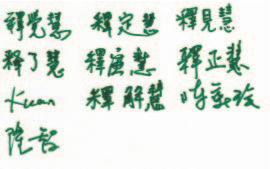 釋覺慧 釋定慧 釋見慧
釋了慧 釋廣慧 釋正慧
Kuan 釋解慧 陳
隆智